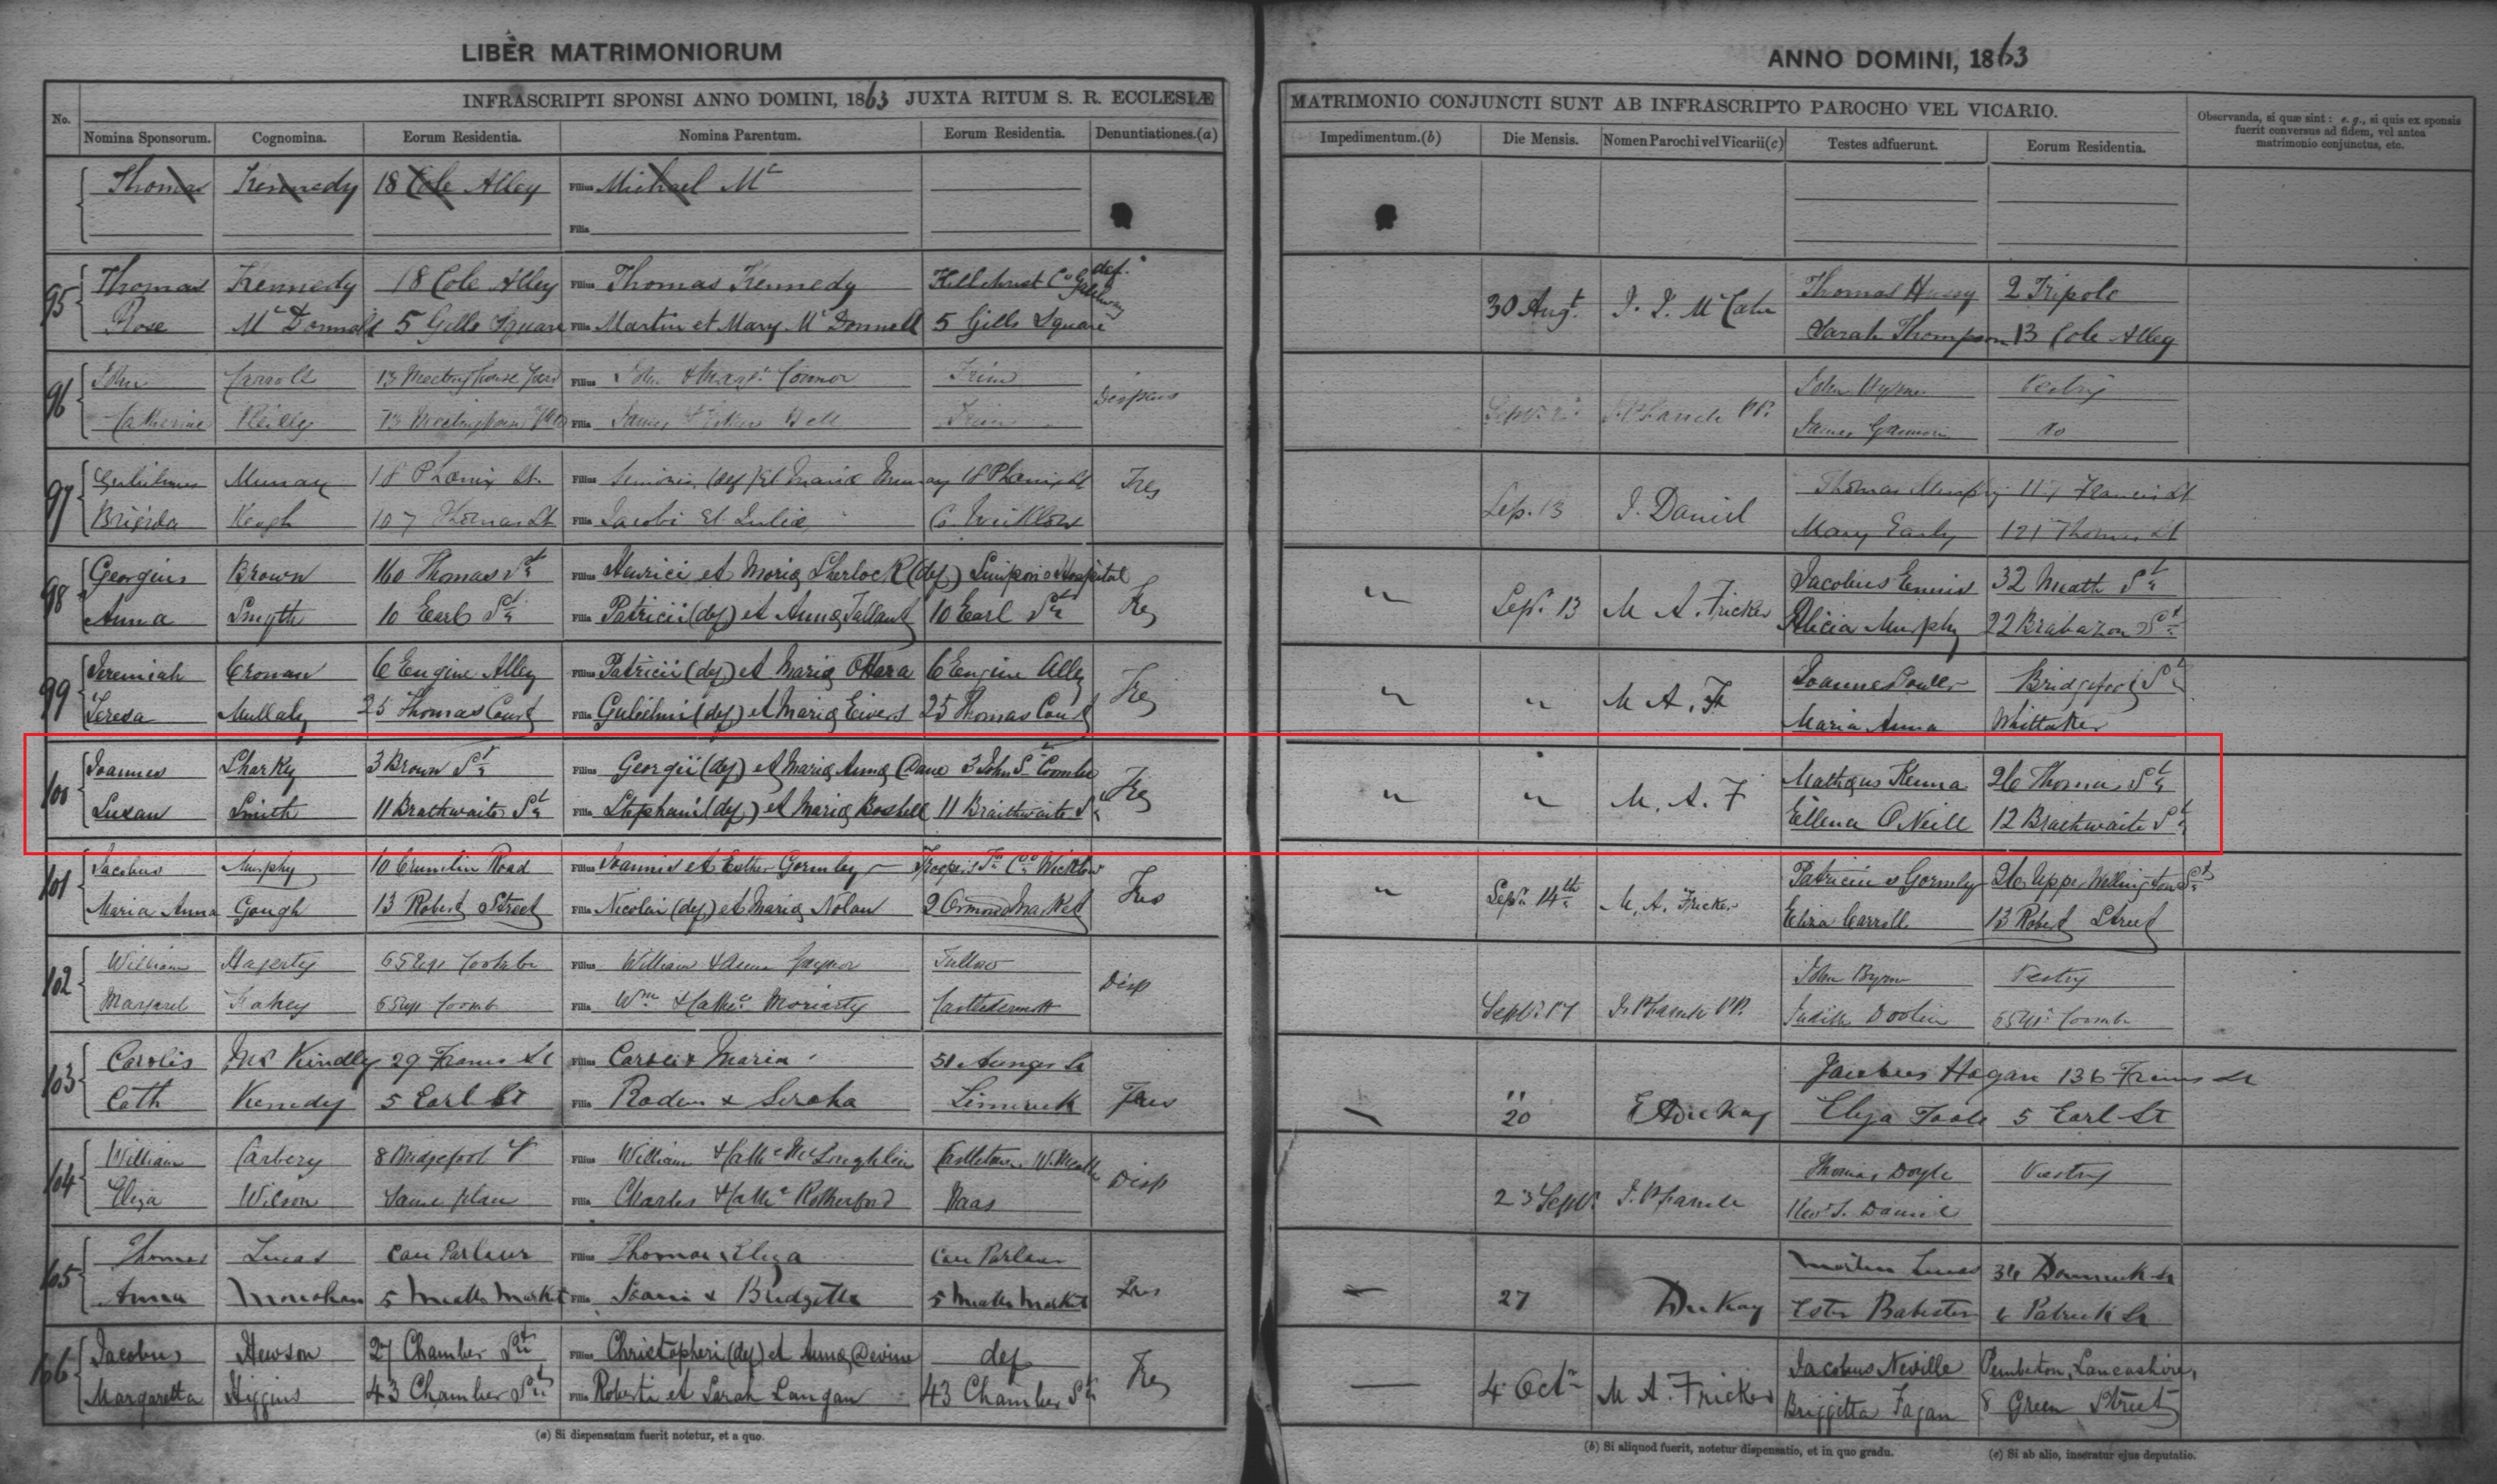 LIBER MATRIMONIORUM
ANNO DOMINI, 1863
INFRASCRIPTI SPONSI ANNO DOMINI, 1863 JUXTA RITUM S. R. ECCLESIÆ
MATRIMONIO CONJUNCTI SUNT AB INFRASCRIPTO PAROCHO VEL VICARIO.
Observanda, si quæ sint: e. g., si quis ex sponsis
fuerit conversus ad fidem, vel antea
matrimonio conjunctus, etc.
No. Nomina Sponsorum. Cognomina. Eorum Residentia. Nomina Parentum. Eorum Residentia. Denuntiationes.(a) Impedimentum.(b) Die Mensis. Nomen Parochi vel Vicarii(c) Testes adfuerunt. Eorum Residentia.
Thomas Kennedy 18 Cole Alley Filius Michael Mc
Filia
95
Thomas Kennedy 18 Cole Alley Filius Thomas Kennedy Co Galway def. 30 Augt. Thomas Hussy 2 Tripolo
Rose McDonnald 5 Gills Square Filia Martin et Mary McDonnell 5 Gills Square Sarah Thompson 13 Cole Alley
96
John Carroll 13 Meetinghouse Yard Filius John Connor Trim John Byrne Vestry
Catherine Reilly 13 Meetinghouse Filia James Bell Trim James do
97
Gulielmus Murray 18 Phoenix St. Filius (def) et Maria Murray 18 Phoenix St Tres Sep. 13 J. Daniel Thomas Murphy 117 Francis St
Brigida Keogh 107 Thomas St Filia Jacobi et Julia Co. Wicklow Mary Early 121 Thomas St
98
Georgius Brown 160 Thomas St Filius Henrici et Mariæ Sherlock (def) Simpsons Hospital Tres " Sepr. 13 M. A. Fricker Jacobus Ennis 32 Meath St
Anna Smyth 10 Earl St Filia Patricii (def) et Annæ Tallant 10 Earl St Alicia Murphy 22 Brabazon St
99
Jeremiah Cronan 6 Engine Alley Filius Patricii (def) et Mariæ OHara 6 Engine Alley Tres " " M. A. F Bridgefoot St
Teresa Mullaly 25 Thomas Court Filia Gulielmi (def) et Mariæ Eivers 25 Thomas Court Maria Anna Whittaker
100
Joannes Sharky 3 Brown St Filius Georgii (def) et Mariæ Annæ Dane 3 John St Coombe Tres " " M. A. F Kenna 26 Thomas St
Susan Smith 11 Brathwaite St Filia Stephani (def) et Mariæ Boshell 11 Braithwaite St Ellena O Neill 12 Braithwaite St
101
Jacobus Murphy 10 Crumlin Road Filius Joannis et Esther Gormley Co. Wicklow Tres " Sepr. 14th M. A. Fricker Patricius Gormley 26 Upper Wellington St
Maria Anna Gough 13 Robert Street Filia Nicolai (def) et Mariæ Nolan 2 Ormond Market Eliza Carroll 13 Robert Street
102
William Hagerty 65 Upr Coombe Filius William & Anne Gaynor Tullow Disp Septr. 17 John Byrne Vestry
Margaret Fahey 65 Upr Coomb Filia Wm & Cathe. Moriarty Castledermott Judith Doolin 65 Upr Coombe
103
Carolis McKindley 29 Francis St Filius Caroli & Maria 51 Aungier St Tres " 20 Jacobus Hagan 136 Francis St
Cath Kennedy 5 Earl St Filia Limerick Eliza Toole 5 Earl St
104
William Carbery 8 Bridgefoot St Filius William & Cathe McLoughlin Castletown W.Meath Disp 23 Septr. Thomas Doyle Vestry
Eliza Wilson Same place Filia Charles & Cathe Rotherford Naas Revd. J. Daniel
105
Thomas Lucas Cow Parlour Filius Thomas & Eliza Cow Parlour Tres 27 Martin Lucas
Anna Monahan 5 Meath Market Filia Joanni & Bridgetta 5 Meath Market 4 Patrick St
106
Jacobus Hewson 27 Chamber St Filius Christopheri (def) et Annæ Devine def Tres 4 Octr M. A. Fricker Jacobus Neville Pemberton, Lancashire,
Margaretta Higgins 43 Chamber St Filia Roberti et Sarah Langan 43 Chamber St Briggitta Fagan 8 Green Street
(a) Si dispensatum fuerit notetur, et a quo.
(b) Si aliquod fuerit, notetur dispensatio, et in quo gradu.
(c) Si ab alio, inseratur ejus deputatio.